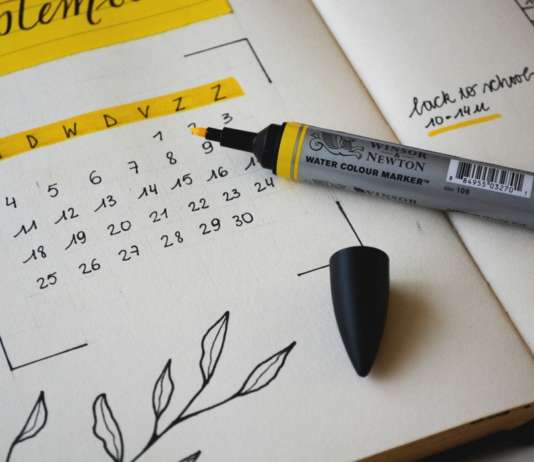 D W D V Z Z
1 2 3
4 5 6 7 8 9
11 12 13 14 15 16
18 19 20 21 22 23 24
25 26 27 28 29 30
WINSOR
& NEWTON
WATER COLOUR MARKER™
WINSOR
84955 03270
108
back to school
10-14u